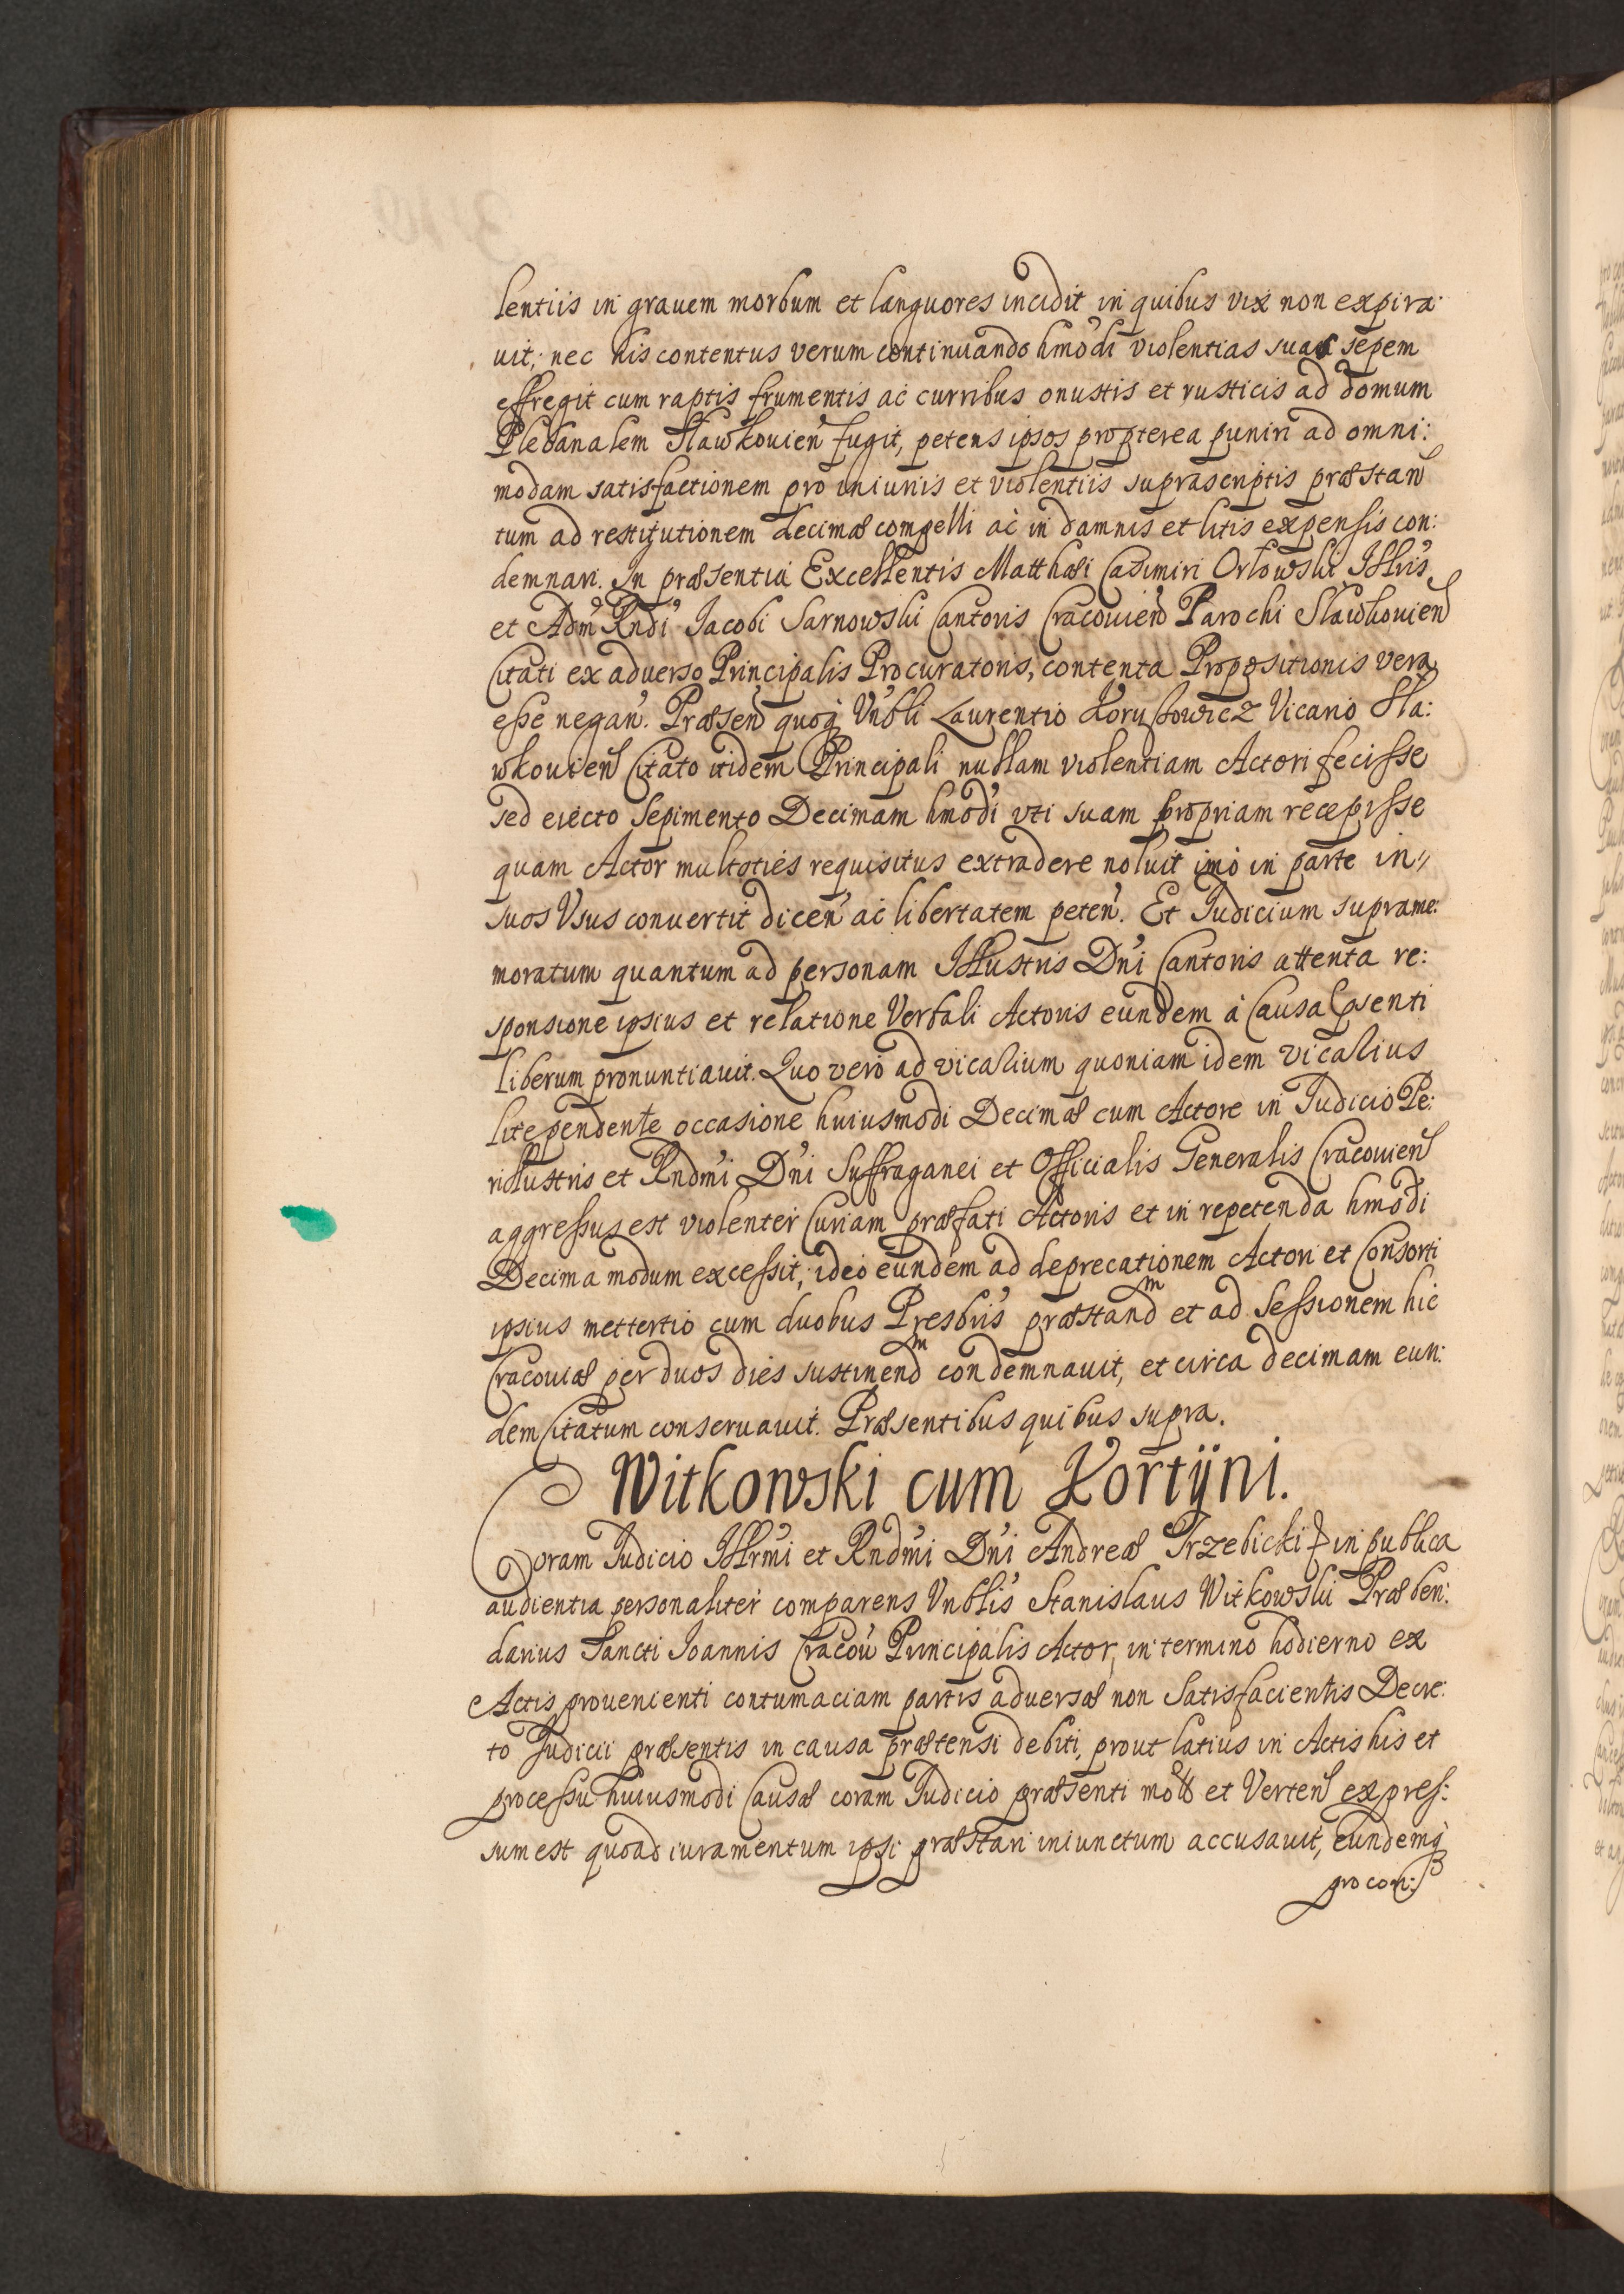 lentiis in grauem morbum et languores incidit in quibus vix non expira:
uit; nec his contentus verum continuando hmodi violentias suas sepem
effregit cum raptis frumentis ac curribus onustis et rusticis ad domum
Plebanalem Slawkouien fugit, petens ipsos propterea puniri ad omni:
modam satisfactionem pro iniuriis et violentiis suprascriptis præstan
tum ad restitutionem decimæ compelli ac in damnis et litis expensis con:
demnari. In præsentia Excellentis Matthæi Casimiri Orłowski Illris
et Adm Rndi Jacobi Sarnowski Cantoris Cracouien Parochi Slawkouien
Citati ex aduerso Principalis Procuratoris, contenta Propositionis vera
esse negan. Præsen quoq Vnbli Laurentio Vicario Sla:
wkouien Citato itidem Principali nullam violentiam Actori fecisse
sed eiecto Sepimento Decimam hmodi vti suam propriam recepisse
quam Actor multoties requisitus extradere noluit imo in parte in,,
suos Vsus conuertit dicen ac libertatem peten. Et Judicium suprame:
moratum quantum ad personam Illustris Dni Cantoris attenta re:
sponsione ipsius et relatione Verbali Actoris eundem à Causa psenti
liberum pronuntiauit. Quo vero ad vicarium quoniam idem vicarius
lite pendente occasione huiusmodi Decimæ cum Actore in Judicio Pe:
rillustris et Rndmi Dni Suffraganei et Officialis Generalis Cracouien
aggressus est violenter Curiam præfati Actoris et in repetenda hmodi
Decima modum excessit, ideo eundem ad deprecationem Actori et Consorti
ipsius mettertio cum duobus Presbris præstand^m et ad Sessionem hic
Cracouiæ per duos dies sustinend^m condemnauit, et circa decimam eun:
dem Citatum conseruauit. Præsentibus quibus supra.
Witkowski cum Kortÿni.
Coram Judicio Illrmi et Rndmi Dni Andreæ Trzebicki in publica
audientia personaliter comparens Vnblis Stanislaus Witkowski Præben:
darius Sancti Joannis Cracou Principalis Actor, in termino hodierno ex
Actis prouenienti contumaciam partis aduersæ non Satisfacientis Decre:
to Judicii præsentis in causa prætensi debiti, prout latius in Actis his et
processu huiusmodi Causæ coram Judicio præsenti et Verten expres:
sum est quoad iuramentum ipsi præstari iniunctum accusauit, eundemq
pro con: